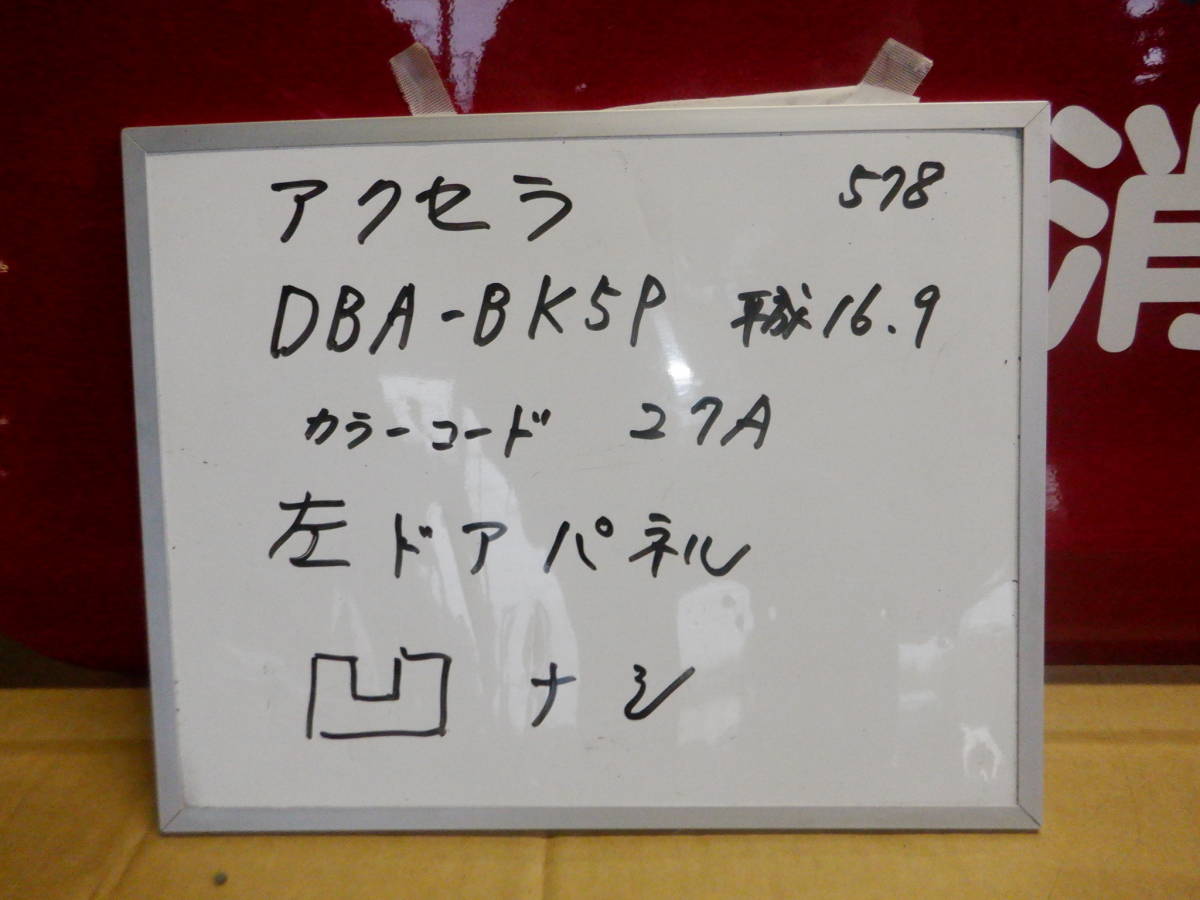 アクセラ 578
DBA-BK5P 平成16.9
カラーコード 27A
左ドアパネル
凹ナシ
消